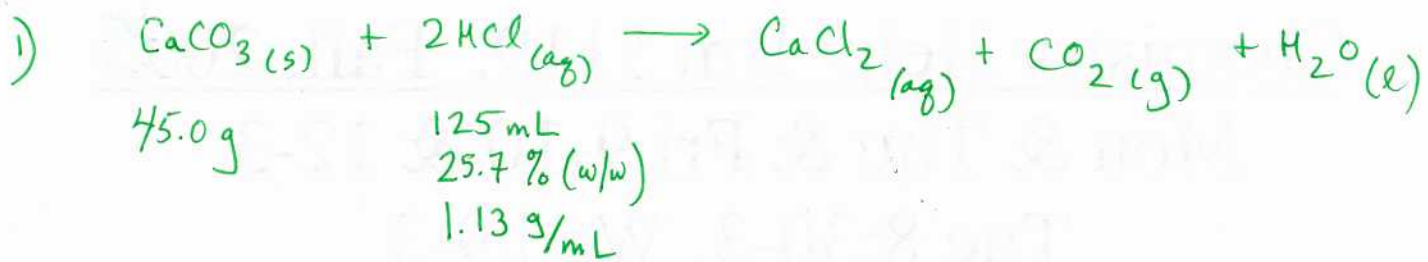 1) CaCO3 (s) + 2HCl (aq) → CaCl2 (aq) + CO2 (g) + H2O (l)
45.0 g 125 mL
25.7 % (w/w)
1.13 g/mL